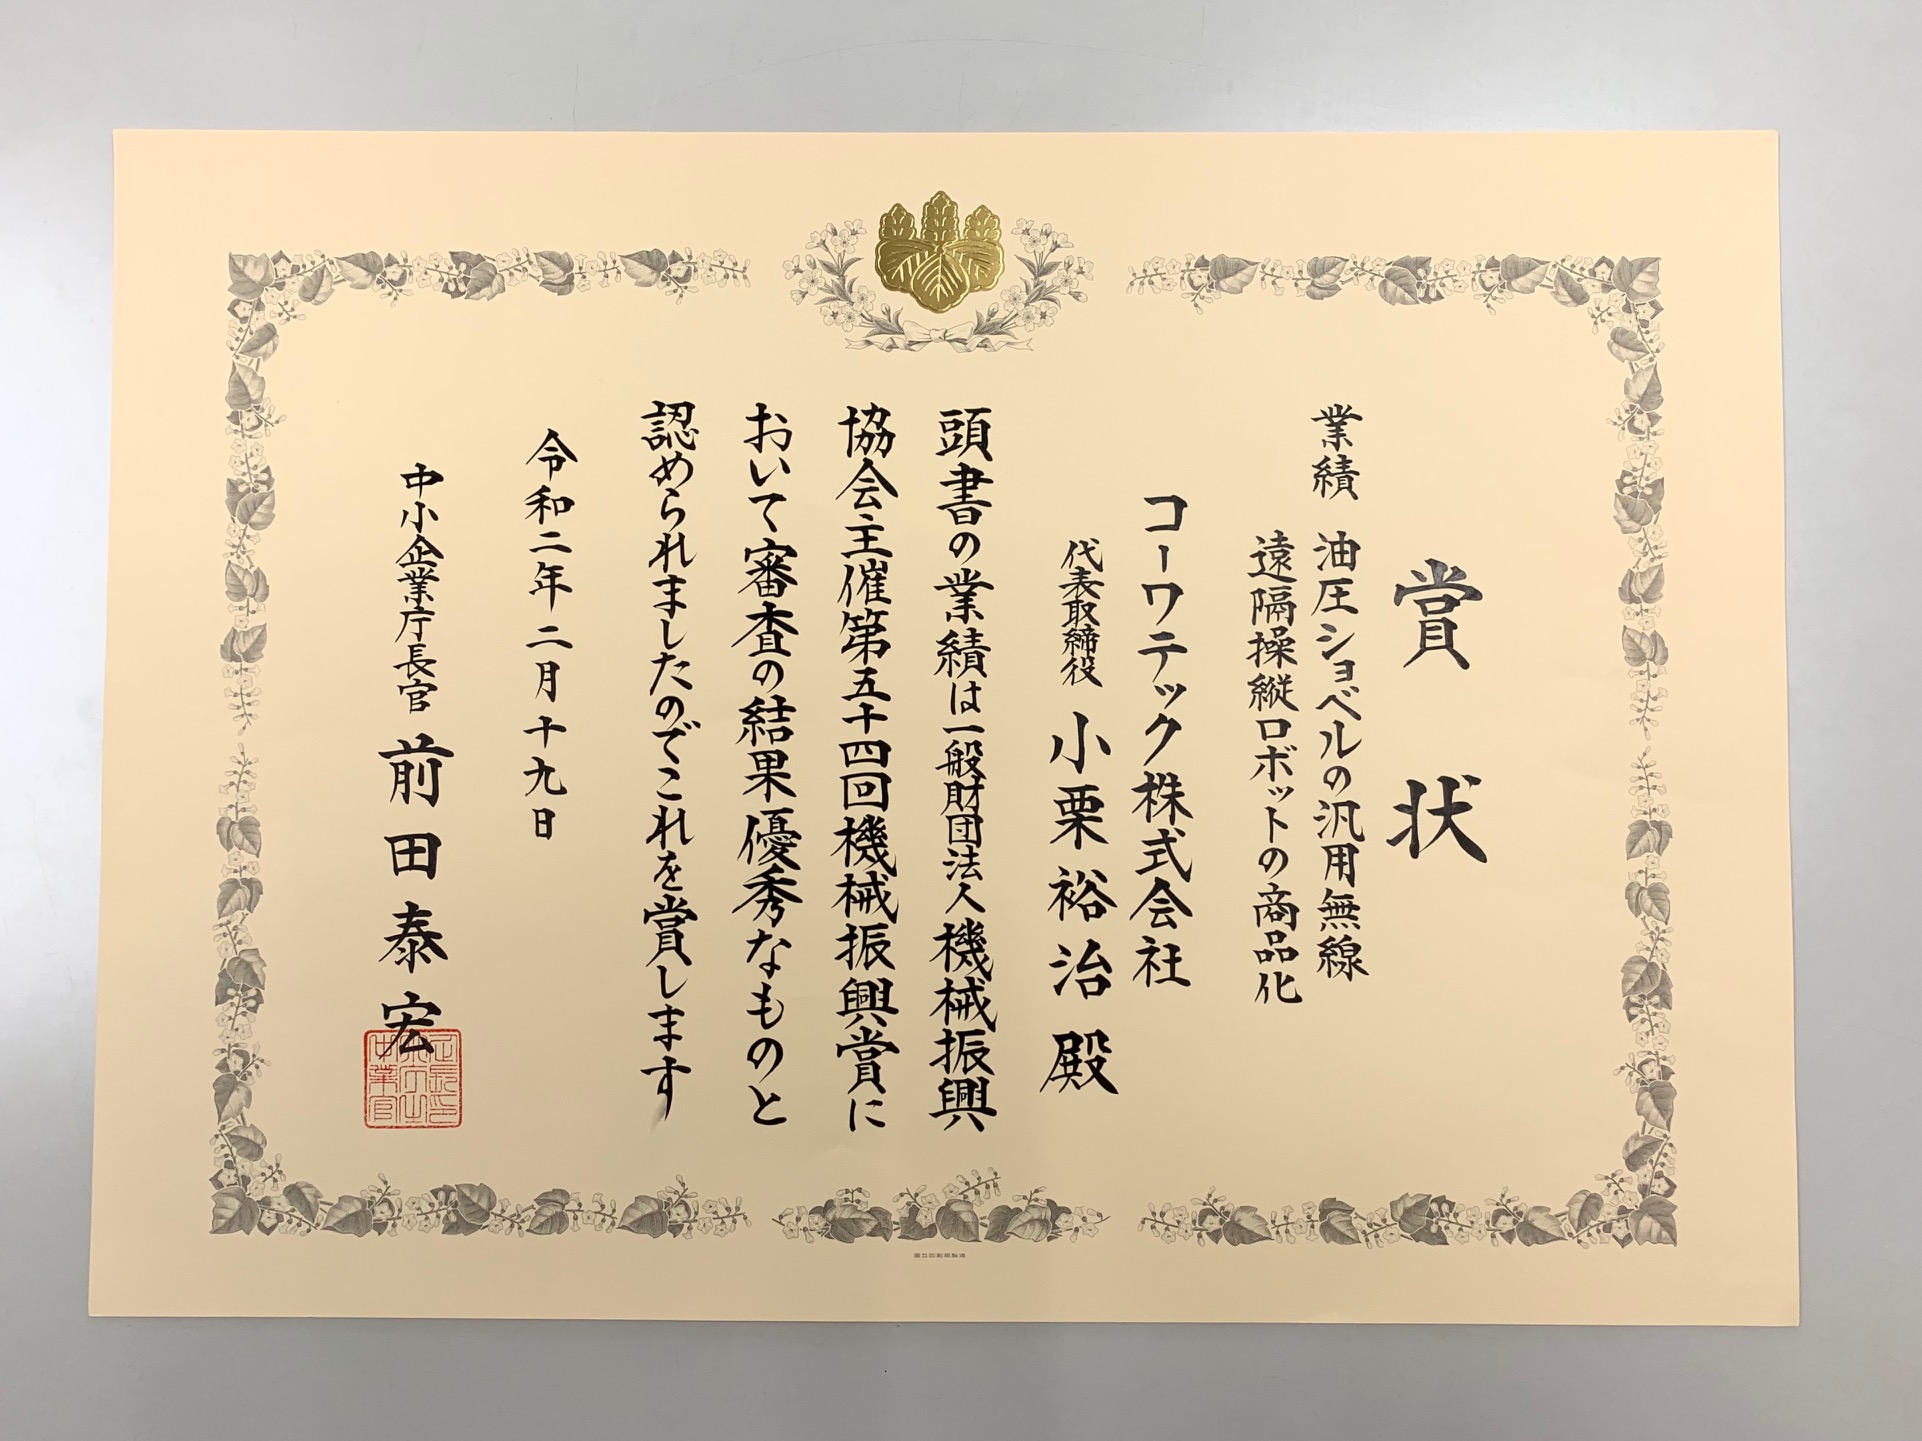 賞状
業績 油圧ショベルの汎用無線
遠隔操縦ロボットの商品化
コーワテック株式会社
代表取締役 小栗裕治殿
頭書の業績は一般財団法人機械振興
協会主催第五十四回機械振興賞に
おいて審査の結果優秀なものと
認められましたのでこれを賞します
令和二年二月十九日
中小企業庁長官 前田泰宏
国立印刷局製造